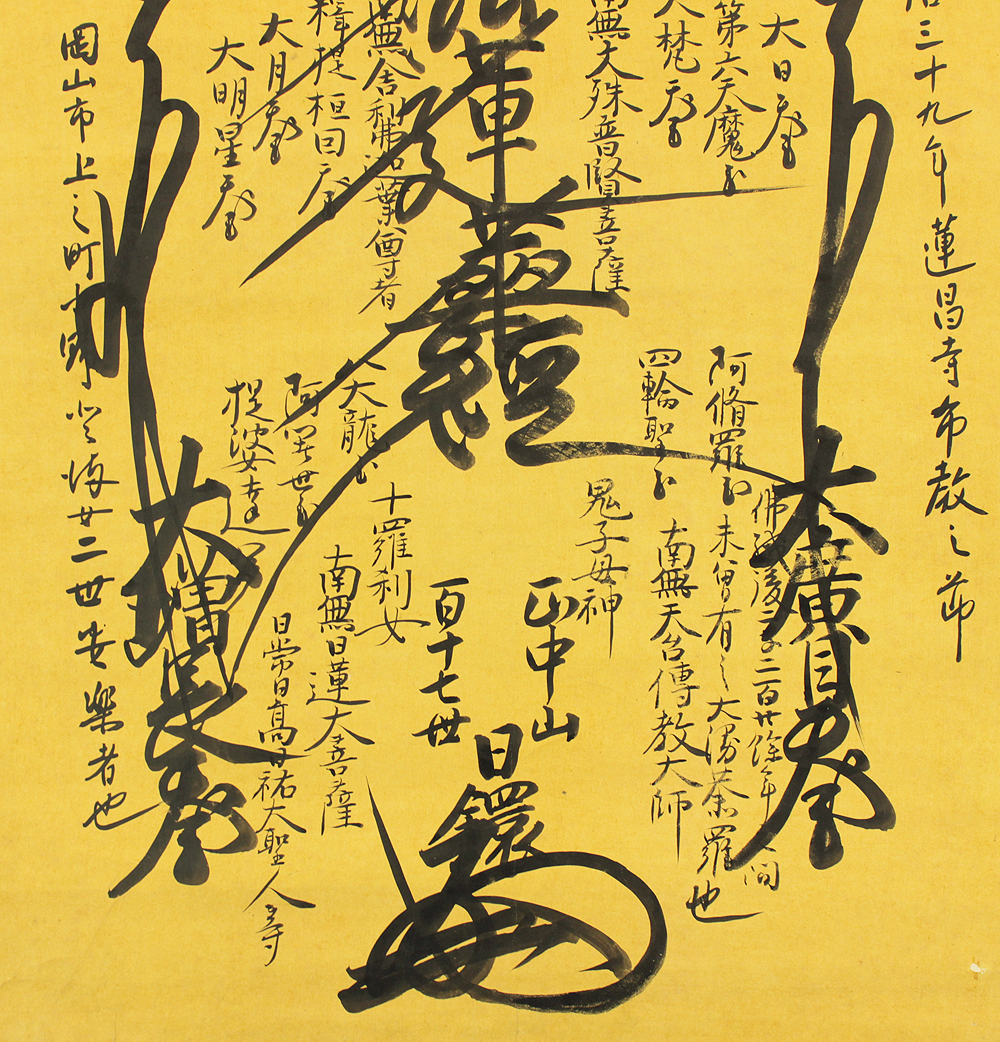 治三十九年蓮昌寺布教之節
大日天王
第六天魔王
大梵天王
南無文殊普賢菩薩
法蓮華経
南無舎利弗迦葉尊者
釋提桓因天王
大月天王
大明星天王
大廣目天玉
佛滅後二千二百廿餘年間
阿脩羅王
未曾有之大漫荼羅也
四輪聖王
南無天台傳教大師
鬼子母神
正中山
百十七世
日鐶
十羅刹女
大龍王
南無日蓮大菩薩
阿闍世王
日常日高日祐大聖人等
提婆達多
大増長天玉
岡山市上之町
廿二世安樂者也